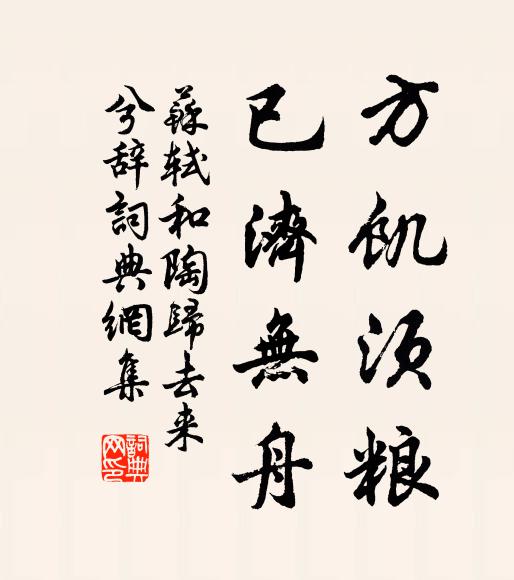 方飢須粮
已濟無舟
蘇軾和陶歸去来
兮辞詞典網集
詞典
网印